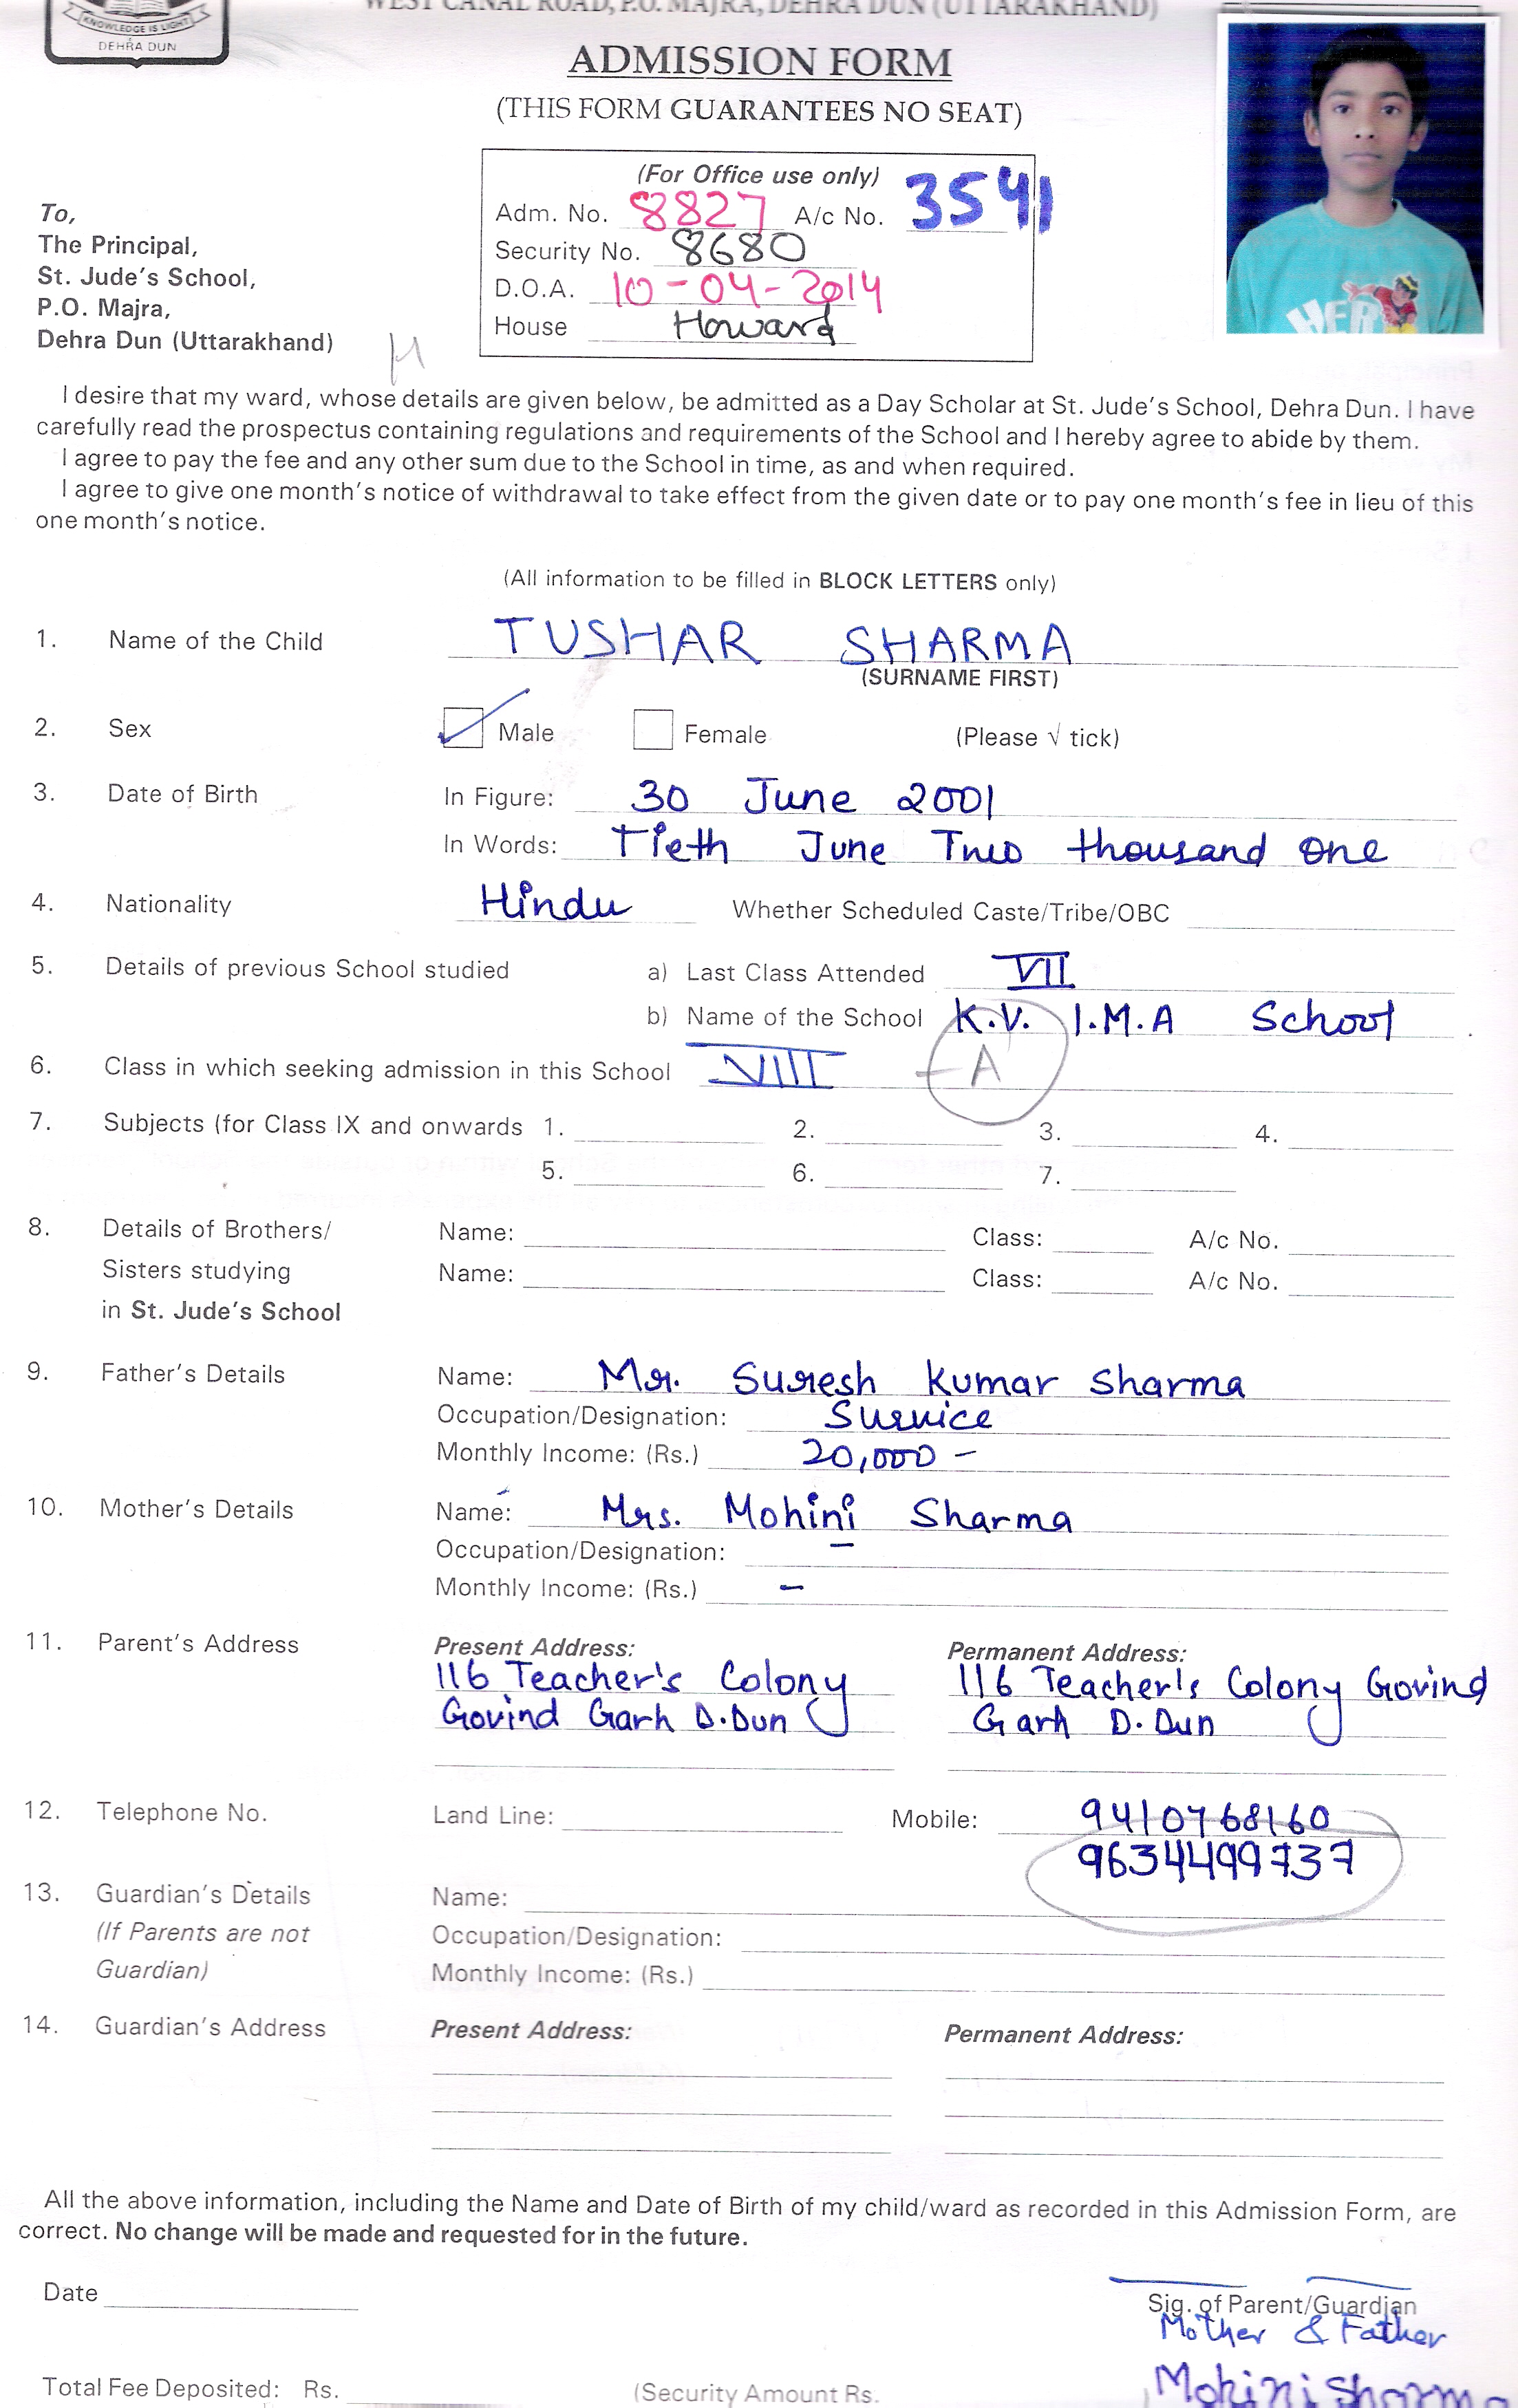 WEST CANAL ROAD, P.O. MAJRA, DEHRA DUN (UTTARAKHAND)
KNOWLEDGE IS LIGHT
DEHRA DUN
ADMISSION FORM
(THIS FORM GUARANTEES NO SEAT)
(For Office use only)
Adm. No. 8827 A/c No. 3541
Security No. 8680
D.O.A. 10-04-2014
House Howard
To,
The Principal,
St. Jude's School,
P.O. Majra,
Dehra Dun (Uttarakhand)
HER
I desire that my ward, whose details are given below, be admitted as a Day Scholar at St. Jude's School, Dehra Dun. I have
carefully read the prospectus containing regulations and requirements of the School and I hereby agree to abide by them.
I agree to pay the fee and any other sum due to the School in time, as and when required.
I agree to give one month's notice of withdrawal to take effect from the given date or to pay one month's fee in lieu of this
one month's notice.
(All information to be filled in BLOCK LETTERS only)
1. Name of the Child TUSHAR SHARMA
(SURNAME FIRST)
2. Sex Male Female (Please √ tick)
3. Date of Birth In Figure: 30 June 2001
In Words: Tieth June Two thousand one
4. Nationality Hindu Whether Scheduled Caste/Tribe/OBC
5. Details of previous School studied a) Last Class Attended VII
b) Name of the School K.V. I.M.A School
6. Class in which seeking admission in this School VIII A
7. Subjects (for Class IX and onwards 1. 2. 3. 4.
5. 6. 7.
8. Details of Brothers/ Name: Class: A/c No.
Sisters studying Name: Class: A/c No.
in St. Jude's School
9. Father's Details Name: Mr. Suresh Kumar Sharma
Occupation/Designation: Survice
Monthly Income: (Rs.) 20,000 -
10. Mother's Details Name: Mrs. Mohini Sharma
Occupation/Designation: -
Monthly Income: (Rs.) -
11. Parent's Address Present Address: Permanent Address:
116 Teacher's Colony 116 Teacher's Colony Govind
Govind Garh D.Dun Garh D.Dun
12. Telephone No. Land Line: Mobile: 9410768160
9634499737
13. Guardian's Details Name:
(If Parents are not Occupation/Designation:
Guardian) Monthly Income: (Rs.)
14. Guardian's Address Present Address: Permanent Address:
All the above information, including the Name and Date of Birth of my child/ward as recorded in this Admission Form, are
correct. No change will be made and requested for in the future.
Date
Sig. of Parent/Guardian
Mother & Father
Total Fee Deposited: Rs. (Security Amount Rs. Mohini Sharma